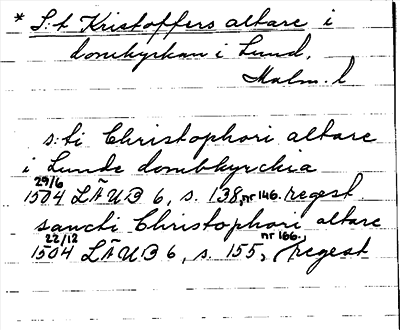 * S:t Kristoffers altare i
domkyrkan i Lund,
Malm. l
s:ti Christophori altare
i Lunde dombkyrckia
29/6
1504 LÄUB 6, s. 138, nr 146. regest
sancti Christophori altare
22/12 nr 166.
1504 LÄUB 6, s. 155, regest